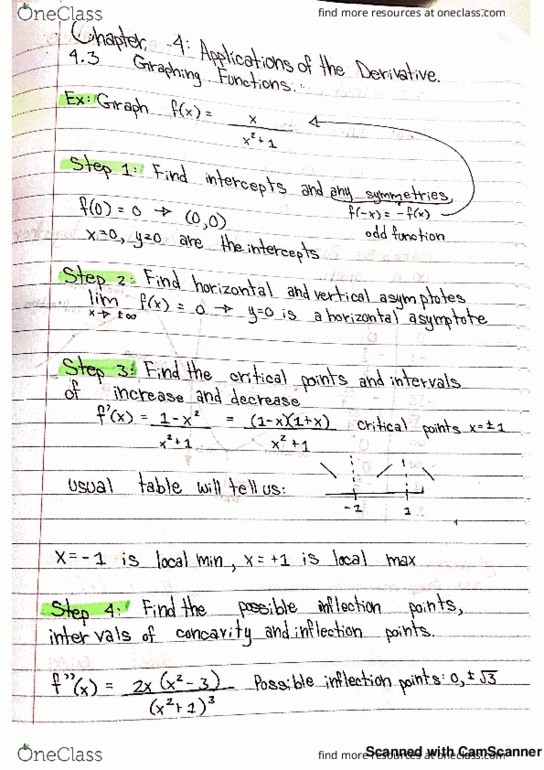 OneClass
find more resources at oneclass.com
Chapter 4: Applications of the Derivative.
4.3 Graphing Functions:
Ex: Graph f(x) = x / x²+1
Step 1: Find intercepts and any symmetries
f(0) = 0 → (0,0) f(-x) = -f(x)
x=0, y=0 are the intercepts odd function
Step 2: Find horizontal and vertical asymptotes
lim x→±∞ f(x) = 0 → y=0 is a horizontal asymptote
Step 3: Find the critical points and intervals
of increase and decrease
f'(x) = 1-x² / x²+1 = (1-x)(1+x) / x²+1 critical points x=±1
usual table will tell us:
-1 1
x=-1 is local min, x=+1 is local max
Step 4: Find the possible inflection points,
intervals of concavity and inflection points.
f''(x) = 2x(x²-3) / (x²+1)³ Possible inflection points: 0, ±√3
OneClass
find more resources at oneclass.com
Scanned with CamScanner